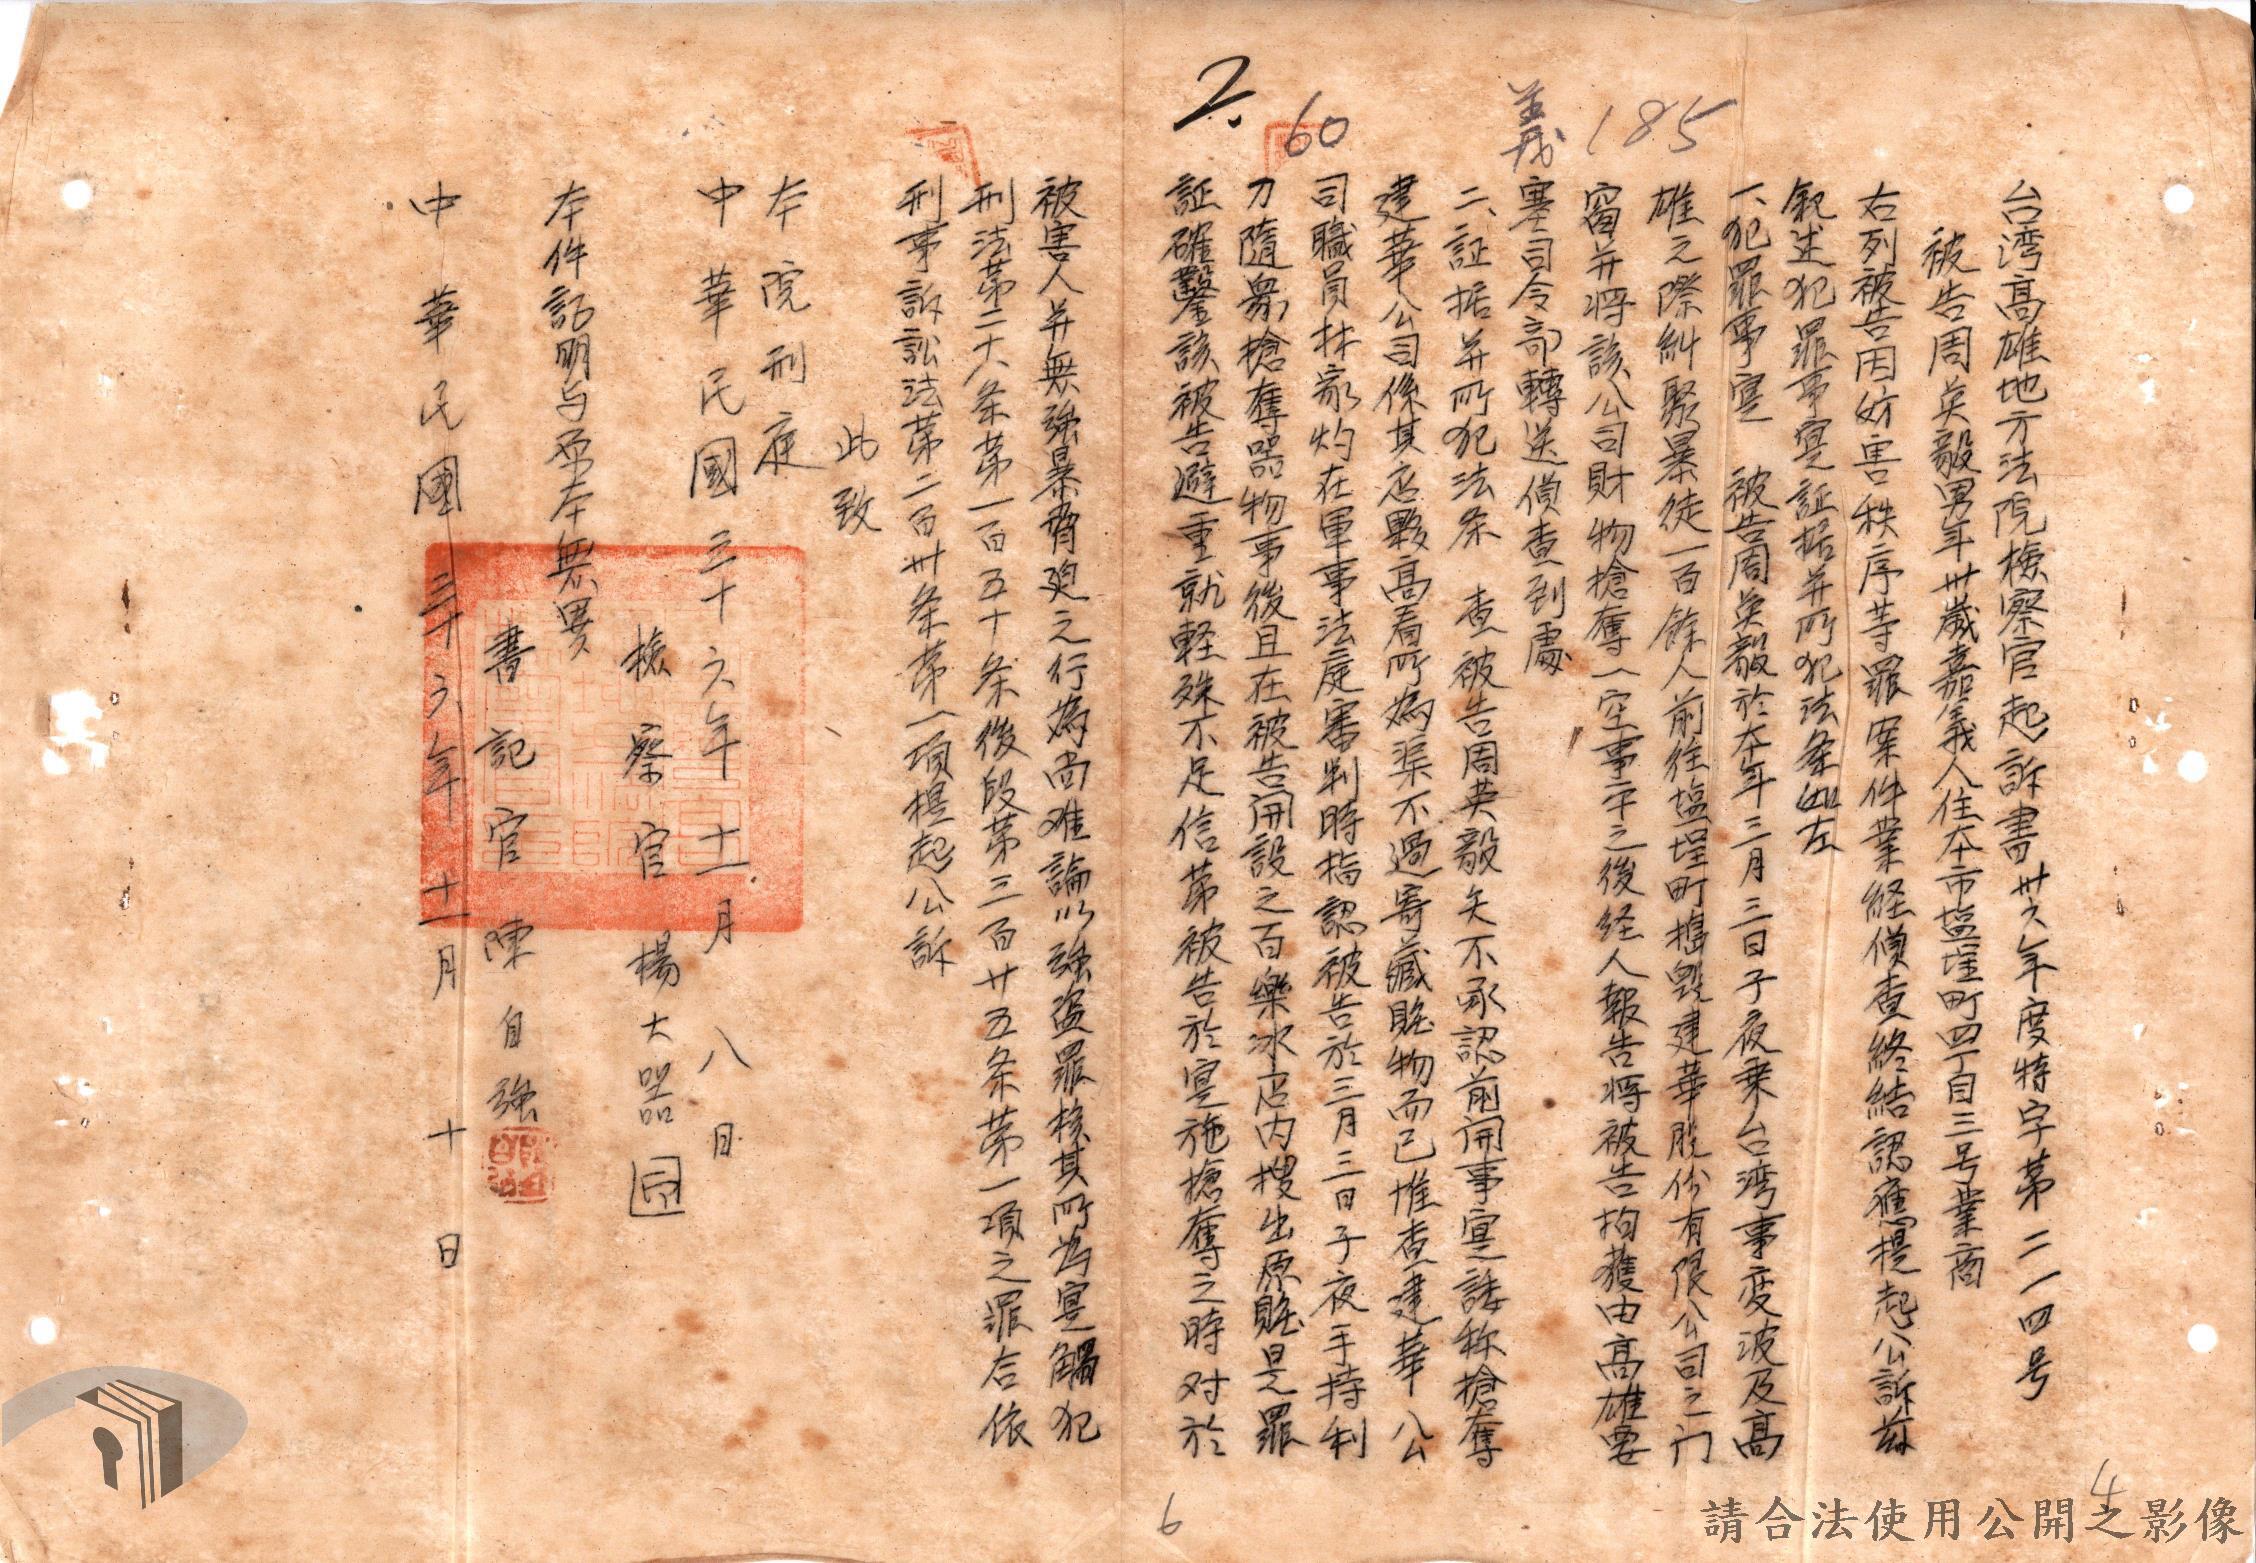 台湾高雄地方法院検察官起訴書卅六年度特字第二一四号
被告周英毅男年卅歲嘉義人住本市塩埕町四丁目三号業商
右列被告因妨害秩序等罪案件業経偵查終結認應提起公訴茲
叙述犯罪事実証据并所犯法条如左
一、犯罪事実　被告周英毅於本年三月三日子夜乗台湾事变波及高
雄之際糾聚暴徒一百餘人前往塩埕町搗毀建華股份有限公司之门
窗并将該公司財物搶奪一空事平之後経人報告将被告拘獲由高雄要
塞司令部轉送偵查到處
二、証据并所犯法条　查被告周英毅矢不承認前開事実諉称搶奪
建華公司係其店夥高看所為渠不過寄藏賍物而已惟查建華公
司職員林家灼在軍事法庭審判時指認被告於三月三日子夜手持利
刀隨衆搶奪器物事後且在被告開設之百樂冰店内搜出原賍是罪
証確鑿該被告避重就軽殊不足信第被告於実施搶奪之時对於
被害人并無強暴脅迫之行為尚难論以強盗罪核其所为実觸犯
刑法第二十八条第一百五十条後段第三百廿五条第一項之罪合依
刑事訴訟法第二百卅条第一項提起公訴
此致
本院刑庭
中華民國三十六年十一月八日
檢察官楊大器
本件証明与原本無異
書記官陳自強
中華民國三十六年十一月十日
義
185
60
2.
4
6
請合法使用公開之影像